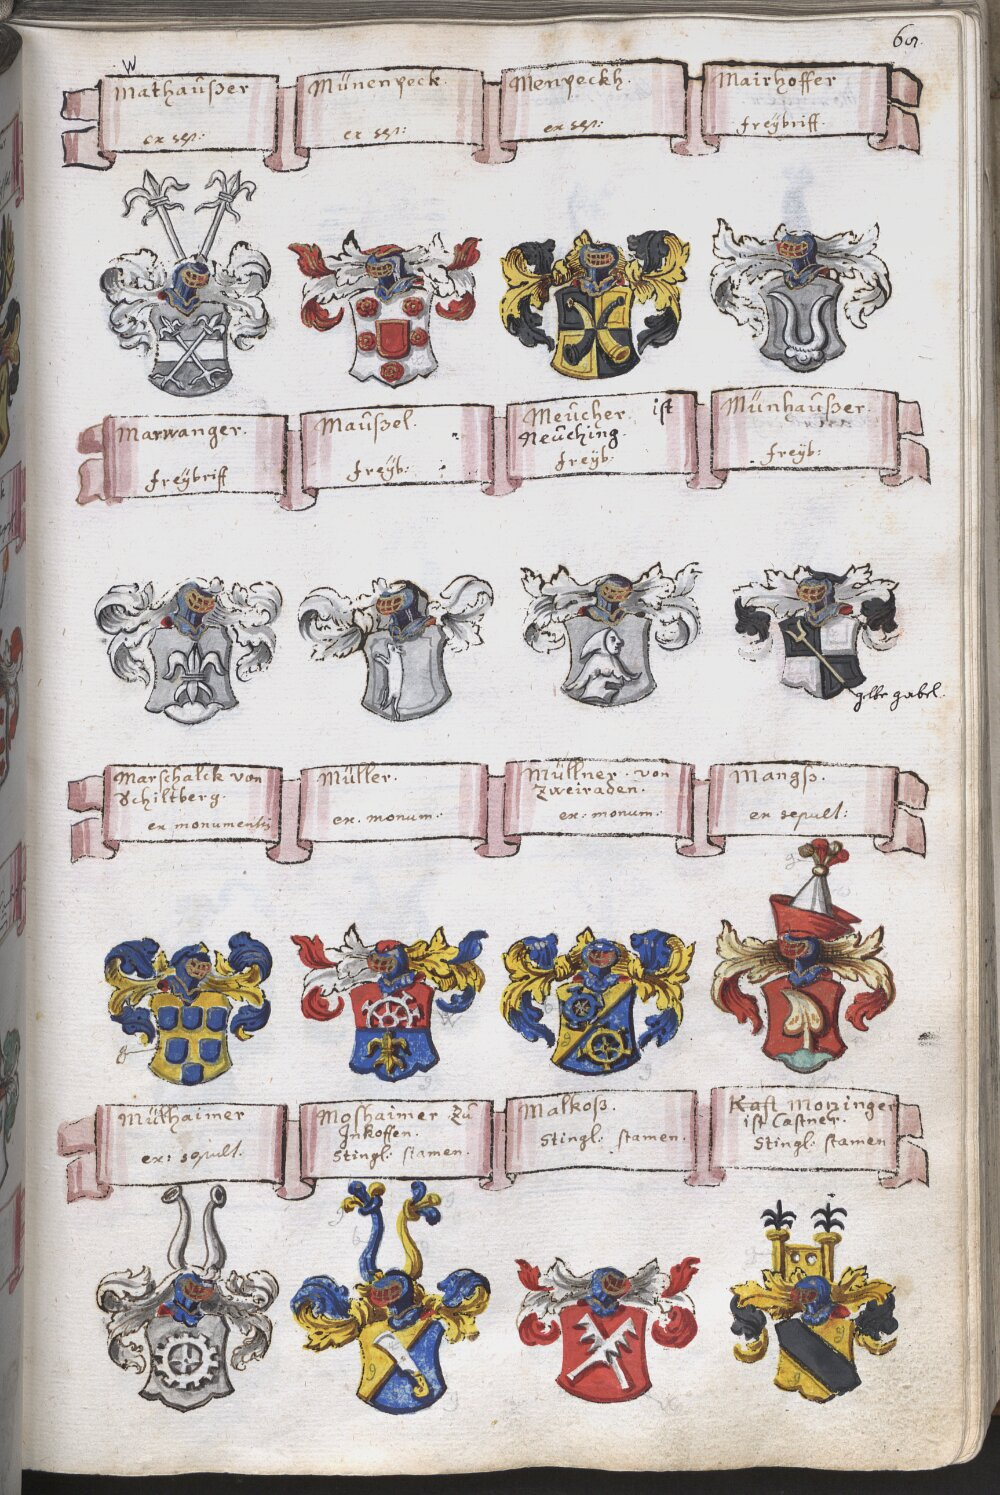 W
Mathaußer
ex sep:
Münenpeck
ex sep:
Menpeckh.
ex sep:
Mairhoffer
freÿbriff
Marwanger.
freÿbriff
Maußel.
freÿb:
Meücher. ist
Neüching.
freÿb:
Münhaüßer.
freÿb:
gelbe gabel.
Marschalck von
Schiltberg.
ex monumentis
Müller.
ex. monum:
Müllner von
Zweiraden.
ex: monum:
Mangß.
ex sepult:
g
Müthaimer
ex: sepult.
Moshaimer Zu
Inkoffen.
Stingl. stamen.
Malkoß.
Stingl: stamen.
Kast Mozinger
ist Castner.
Stingl: stamen